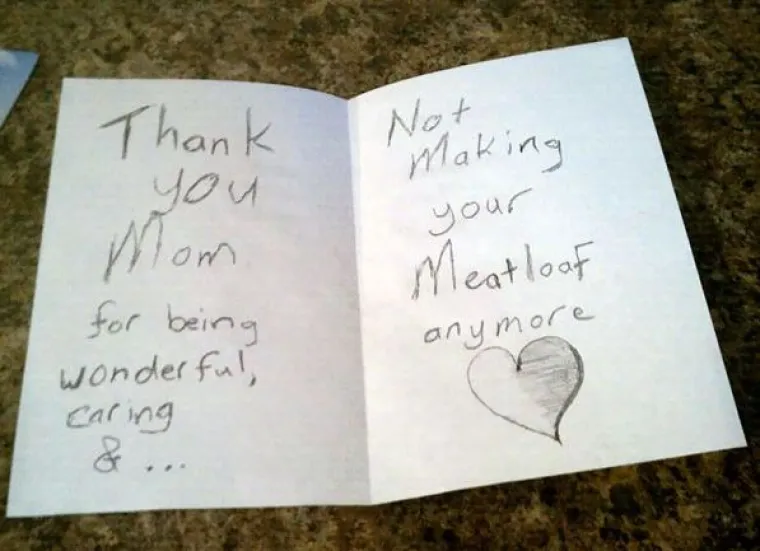 Thank
you
Mom
for being
wonderful,
caring
& ...
Not
Making
your
Meatloaf
anymore